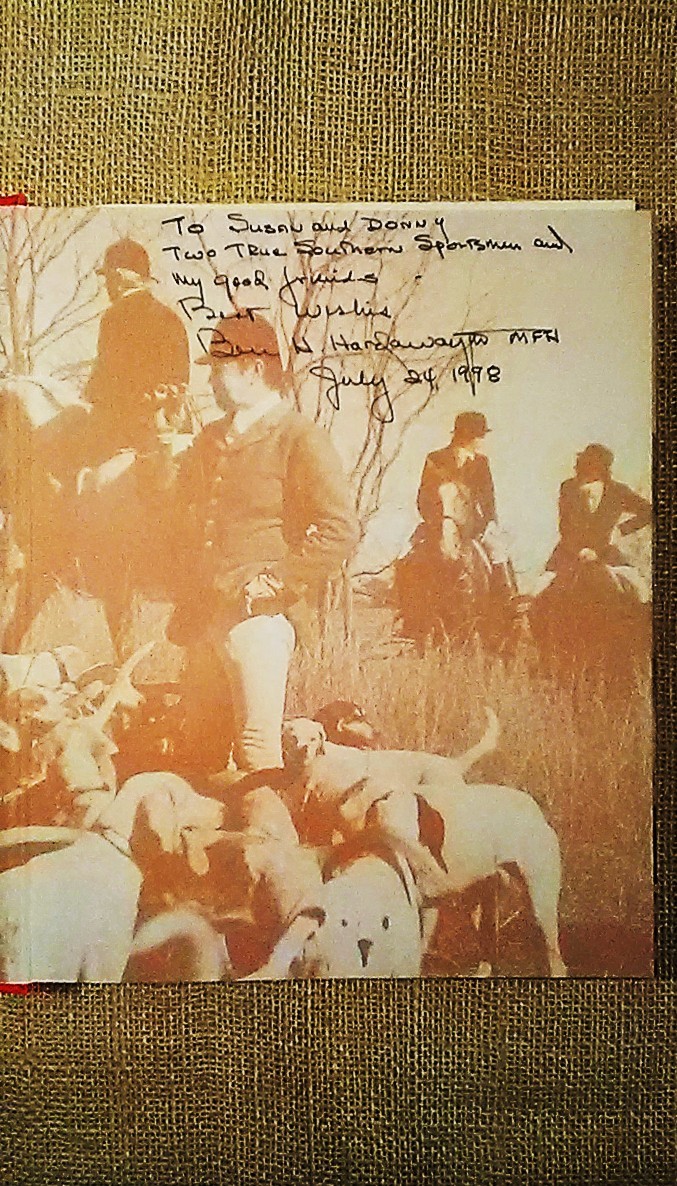 To Susan and Donny
Two True Southern Sportsmen and
my good friends -
Best Wishes
Ben H Hardaway III MFH
July 24, 1998